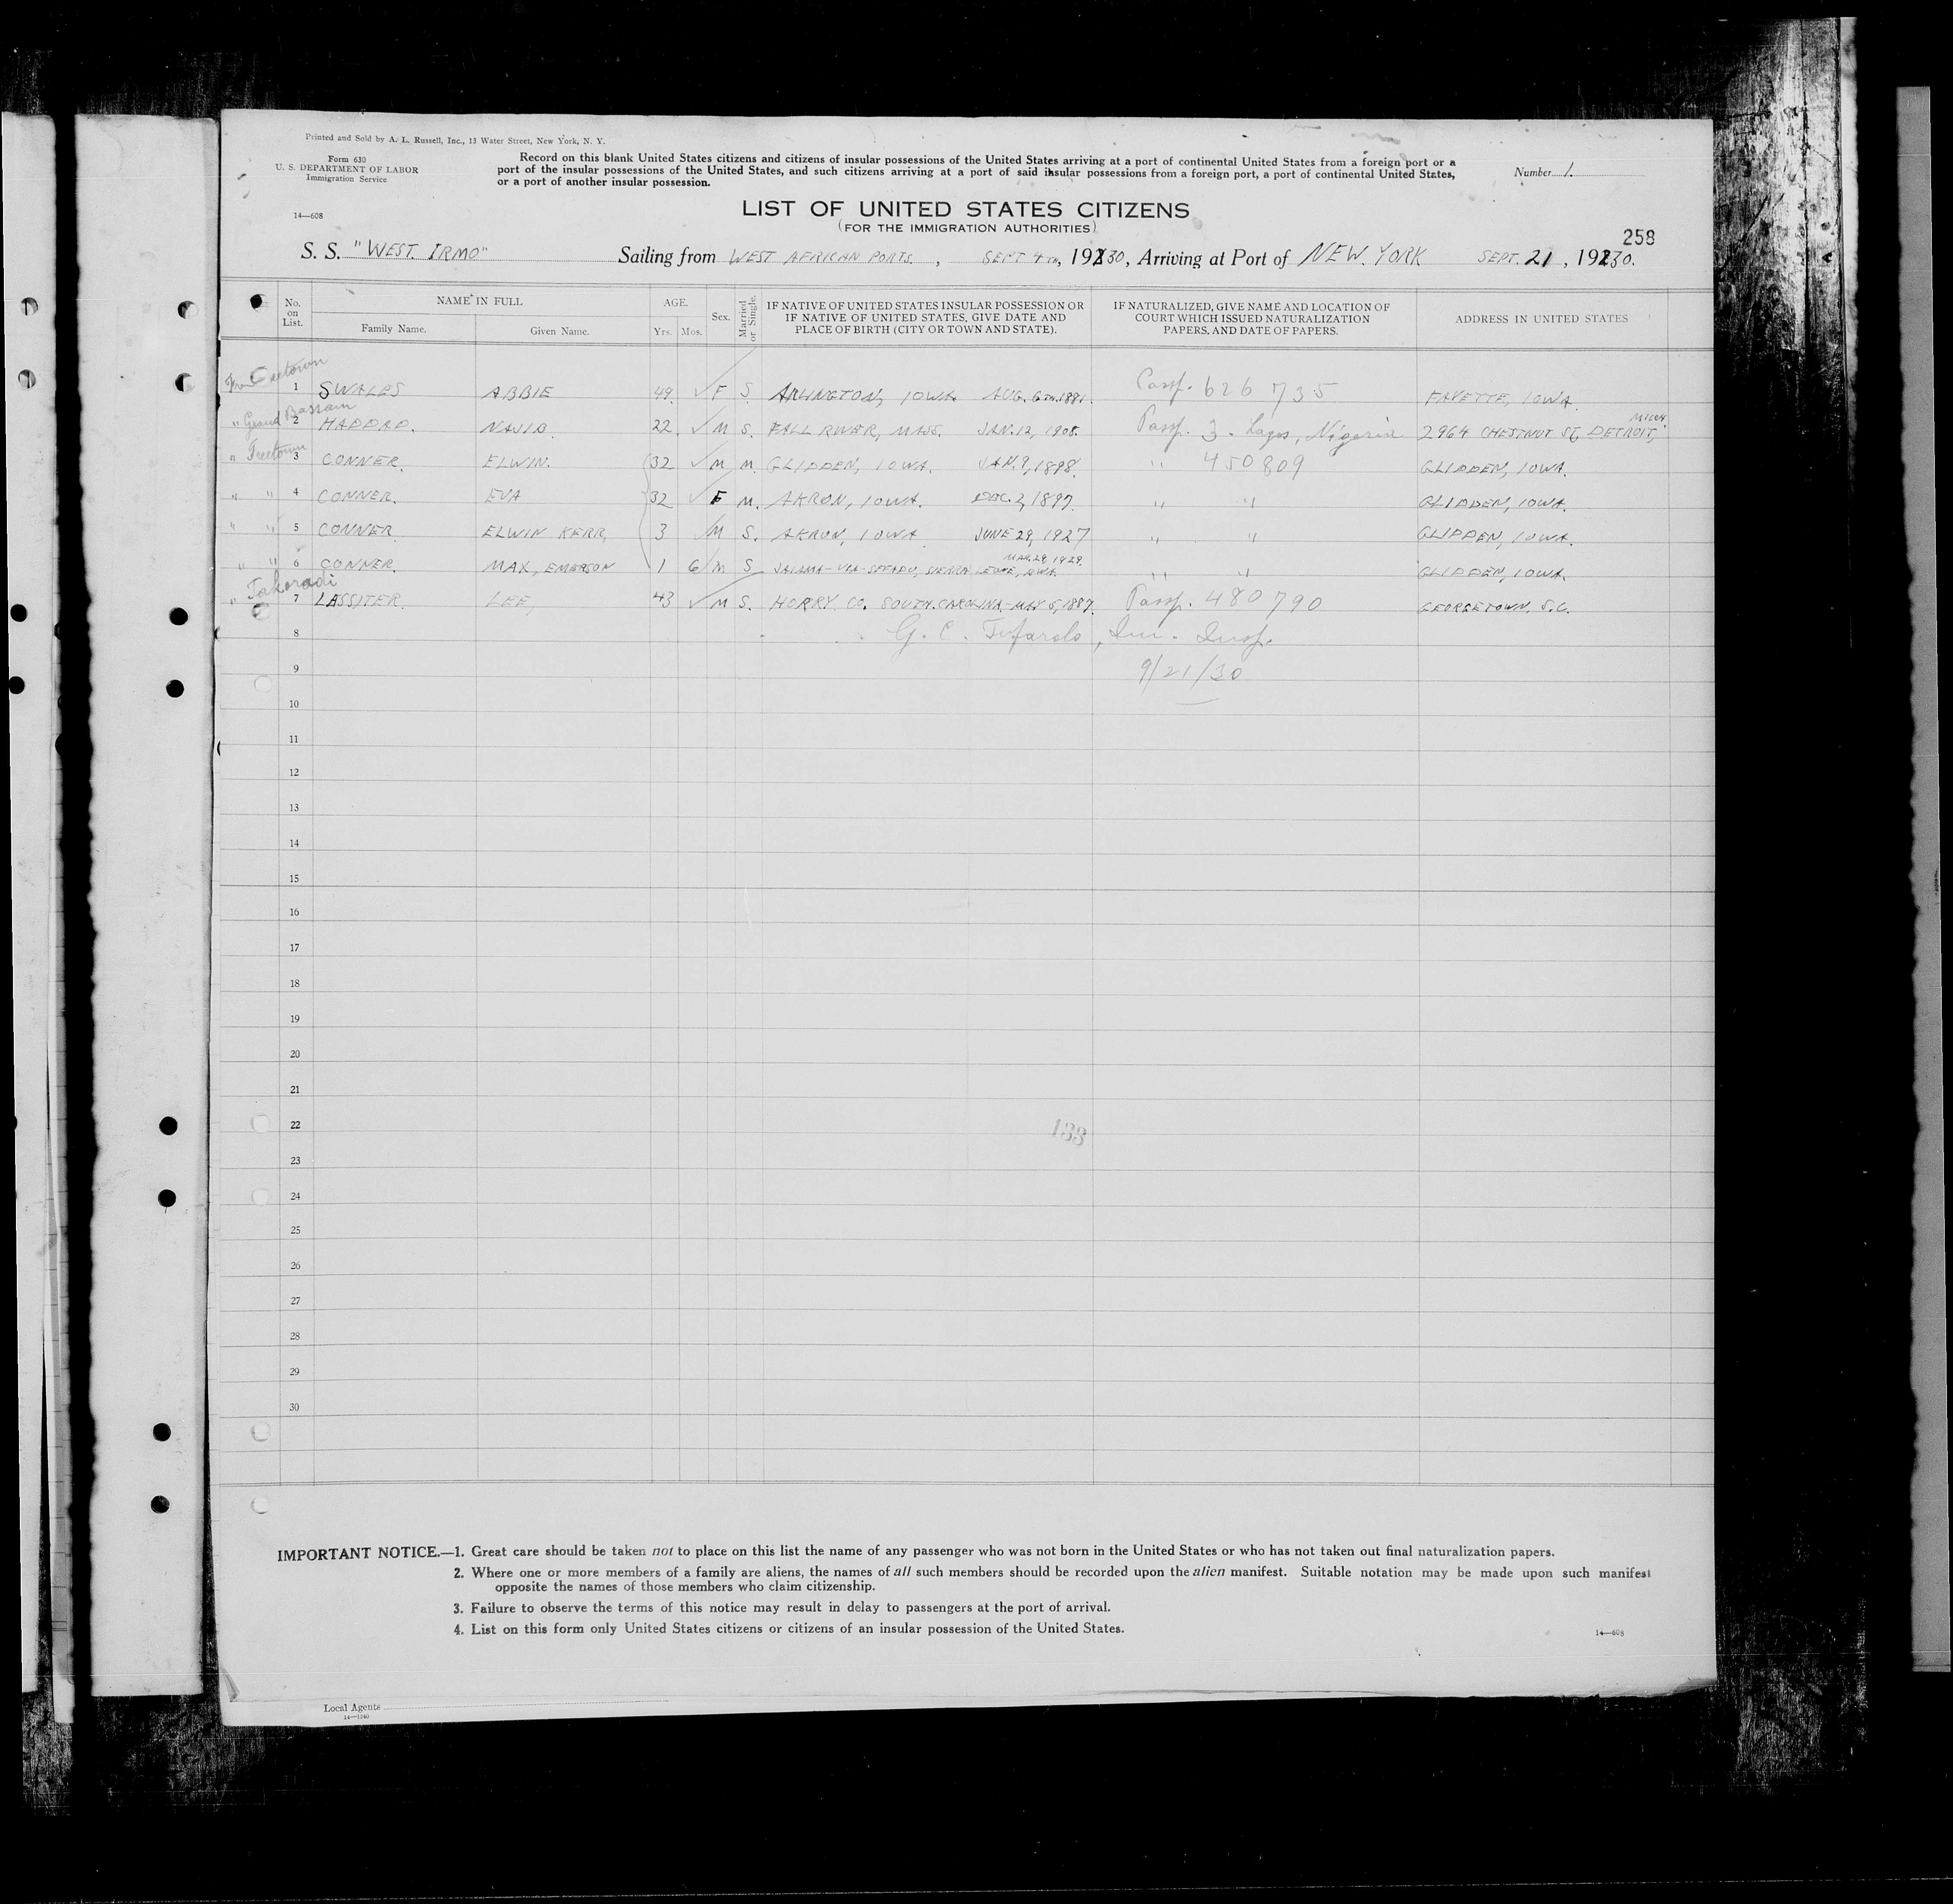 Printed and Sold by A. L. Russell, Inc., 13 Water Street, New York, N. Y.
Form 630
U. S. DEPARTMENT OF LABOR
Immigration Service
14—608
Record on this blank United States citizens and citizens of insular possessions of the United States arriving at a port of continental United States from a foreign port or a
port of the insular possessions of the United States, and such citizens arriving at a port of said insular possessions from a foreign port, a port of continental United States,
or a port of another insular possession.
Number 1.
LIST OF UNITED STATES CITIZENS
(FOR THE IMMIGRATION AUTHORITIES)
258
S. S. "WEST IRMO" Sailing from WEST AFRICAN PORTS, SEPT 4TH, 1930, Arriving at Port of NEW YORK SEPT. 21, 1930.
No. on List. NAME IN FULL Family Name. Given Name. AGE. Yrs. Mos. Sex. Married or Single. IF NATIVE OF UNITED STATES INSULAR POSSESSION OR IF NATIVE OF UNITED STATES, GIVE DATE AND PLACE OF BIRTH (CITY OR TOWN AND STATE). IF NATURALIZED, GIVE NAME AND LOCATION OF COURT WHICH ISSUED NATURALIZATION PAPERS, AND DATE OF PAPERS. ADDRESS IN UNITED STATES
From Freetown 1 SWALES ABBIE 49. F S ARLINGTON, IOWA AUG. 6TH. 1881. Passp. 626735 FAYETTE, IOWA.
" Grand Bassam 2 HADDAD. NAJIB. 22. M S. FALL RIVER, MASS. JAN. 12, 1908. Passp. 3 - Lagos, Nigeria 2964 CHESTNUT ST, DETROIT, MICH.
" Freetown 3 CONNER. ELWIN. 32 M M. GLIDDEN, IOWA. JAN. 9, 1898. " 450809 GLIDDEN, IOWA.
" " 4 CONNER. EVA 32 F M. AKRON, IOWA. DEC. 2, 1897. " " GLIDDEN, IOWA.
" " 5 CONNER ELWIN KERR, 3 M S. AKRON, IOWA JUNE 29, 1927 " " GLIDDEN, IOWA.
" " 6 CONNER. MAX, EMERSON 1 6 M S JAIAMA-VIA-SEFADU, SIERRA LEONE, MAR. 29, 1929. " " GLIDDEN, IOWA.
" Takoradi 7 LASSITER. LEE, 43 M S. HORRY CO. SOUTH. CAROLINA - MAY 5, 1887. Passp. 480790 GEORGETOWN, S.C.
8 G. C. Imm. Insp.
9 9/21/30
10
11
12
13
14
15
16
17
18
19
20
21
22 133
23
24
25
26
27
28
29
30
IMPORTANT NOTICE.—1. Great care should be taken not to place on this list the name of any passenger who was not born in the United States or who has not taken out final naturalization papers.
2. Where one or more members of a family are aliens, the names of all such members should be recorded upon the alien manifest. Suitable notation may be made upon such manifest
opposite the names of those members who claim citizenship.
3. Failure to observe the terms of this notice may result in delay to passengers at the port of arrival.
4. List on this form only United States citizens or citizens of an insular possession of the United States.
14—608
Local Agents
14—1240